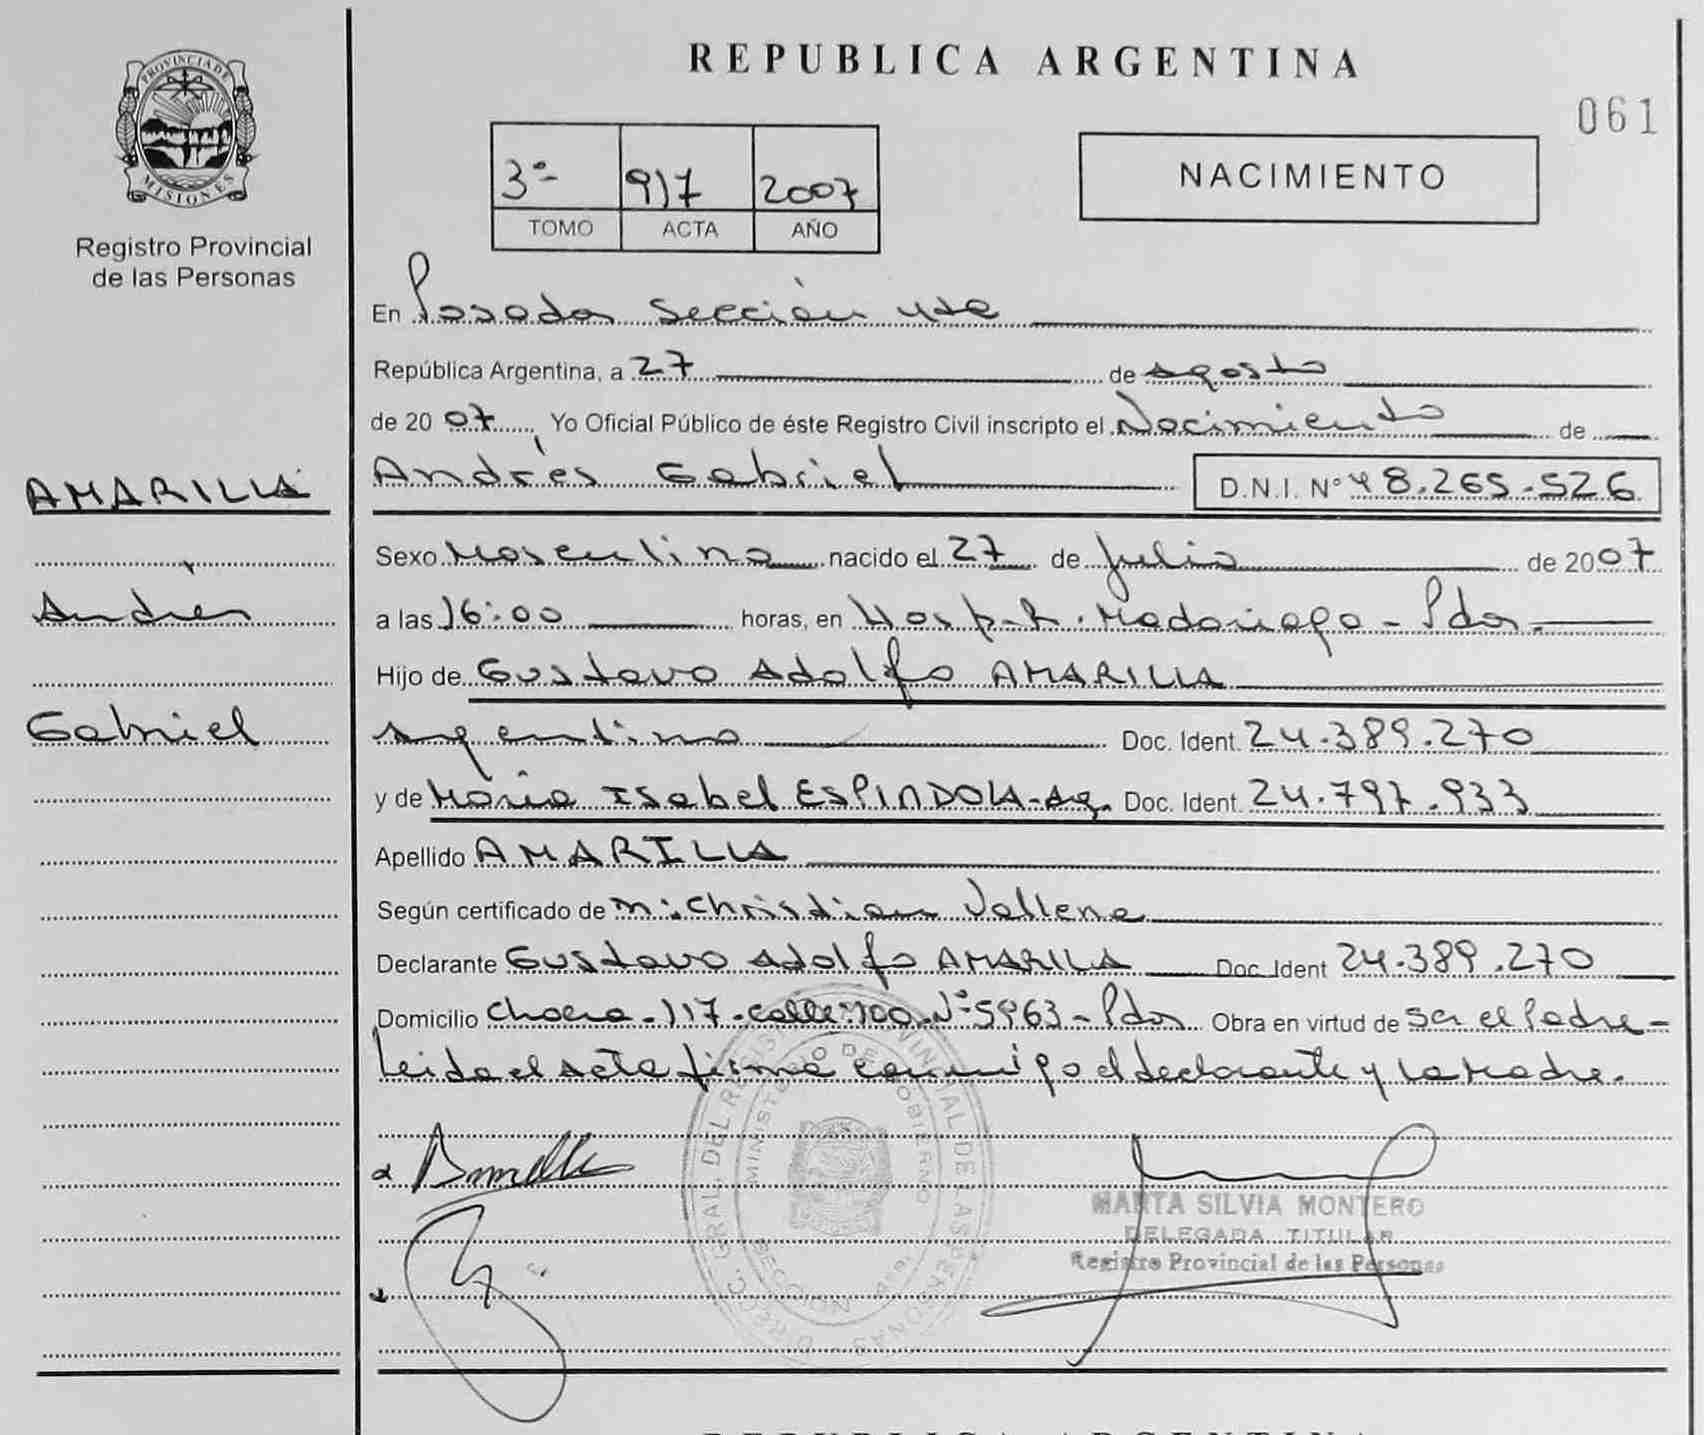 REPUBLICA ARGENTINA
061
PROVINCIA DE
MISIONES
Registro Provincial
de las Personas
3º 917 2007
TOMO ACTA AÑO
NACIMIENTO
En Posadas Sección
República Argentina, a 27 de agosto
de 2007, Yo Oficial Público de éste Registro Civil inscripto el Nacimiento de
Andrés Gabriel D.N.I. Nº 48.265.526
AMARILLA
Andrés
Gabriel
Sexo Masculino nacido el 27 de Julio de 2007
a las 16:00 horas, en Hosp. R. Madariaga - Pdas.
Hijo de Gustavo Adolfo AMARILLA
argentino Doc. Ident. 24.389.270
y de María Isabel ESPINDOLA - Arg. Doc. Ident. 24.797.933
Apellido AMARILLA
Según certificado de M. Christian Vallena
Declarante Gustavo Adolfo AMARILLA Doc. Ident 24.389.270
Domicilio Chacra - 117 - calle 100 Nº 5963 - Pdas Obra en virtud de ser el Padre -
Leida el acta firma conmigo el declarante y la Madre.
DIRECC. GRAL. DEL REGISTRO PROVINCIAL DE LAS PERSONAS
MINISTERIO DE GOBIERNO
SECCION
MARTA SILVIA MONTERO
DELEGADA TITULAR
Registro Provincial de las Personas
REPUBLICA ARGENTINA